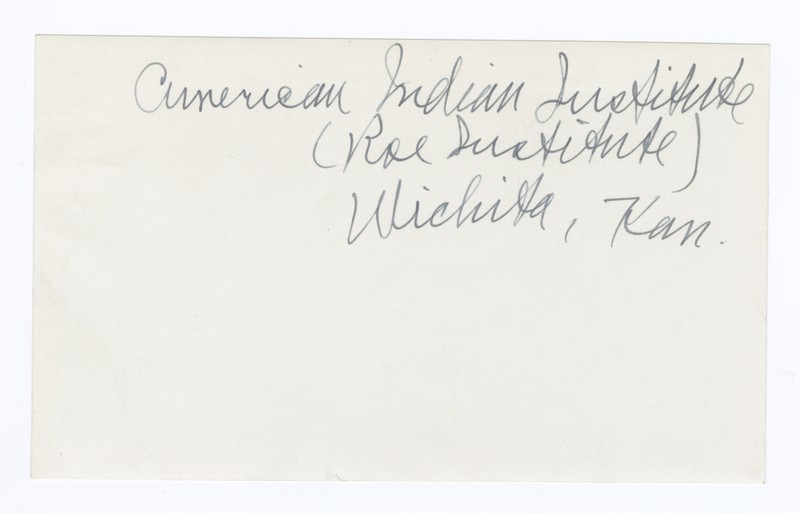 American Indian Institute
(Roe Institute)
Wichita, Kan.